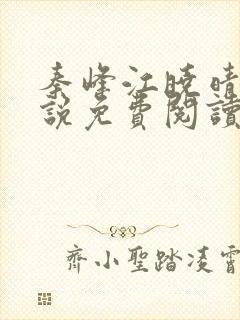 秦峰江曉晴
說免費閱讀
齊小聖踏凌霄